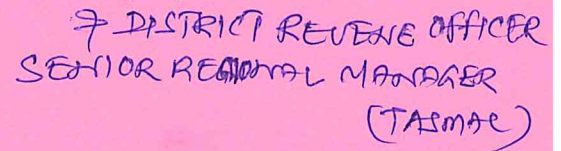 7 DISTRICT REVENE OFFICER
SENIOR REGIONAL MANAGER
(TASMAC)